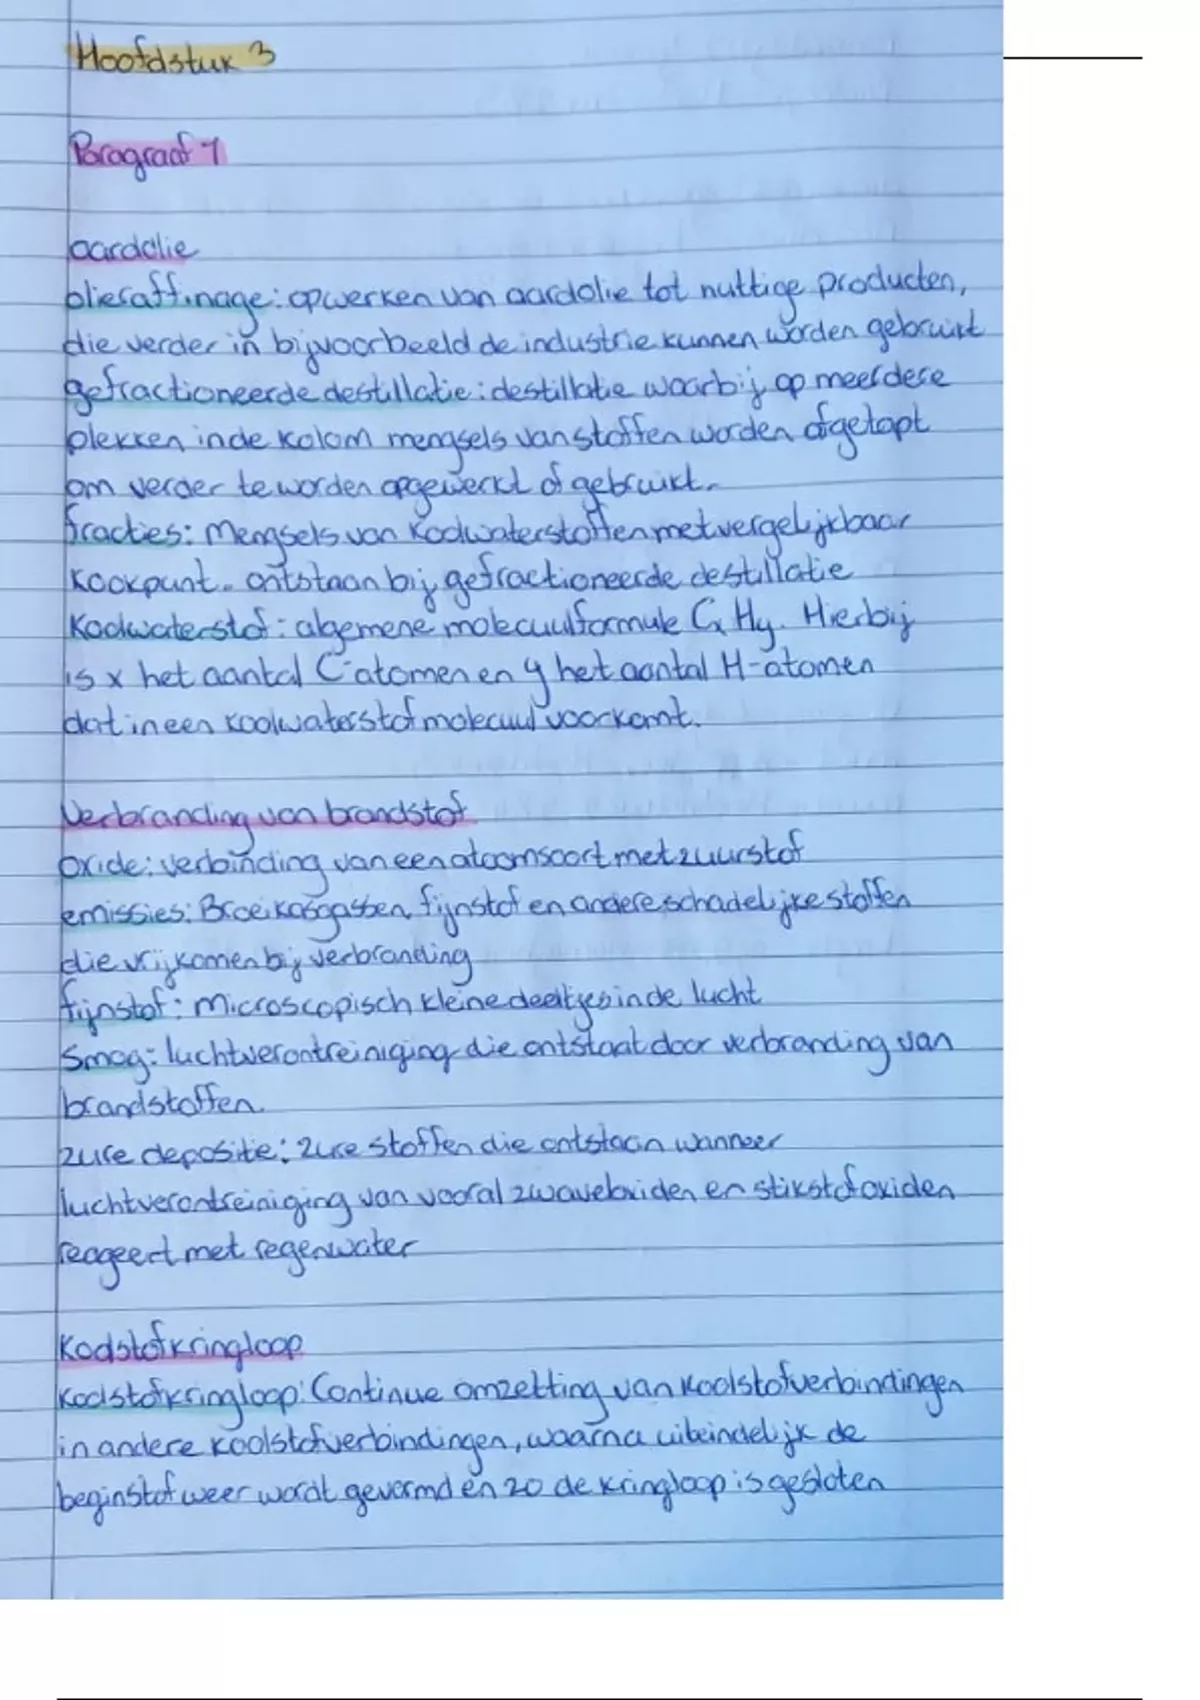 Hoofdstuk 3
Paragraaf 1
aardolie
olieraffinage: opwerken van aardolie tot nuttige producten,
die verder in bijvoorbeeld de industrie kunnen worden gebruikt
gefractioneerde destillatie: destillatie waarbij op meerdere
plekken in de kolom mengsels van stoffen worden afgetapt
om verder te worden opgewerkt of gebruikt.
fracties: Mengsels van koolwaterstoffen met vergelijkbaar
kookpunt. ontstaan bij gefractioneerde destillatie
Koolwaterstof: algemene molecuulformule CxHy. Hierbij
is x het aantal C-atomen en y het aantal H-atomen
dat in een koolwaterstofmolecuul voorkomt.
Verbranding van brandstof
oxide: verbinding van een atoomsoort met zuurstof
emissies: Broeikasgassen, fijnstof en andere schadelijke stoffen
die vrijkomen bij verbranding
fijnstof: Microscopisch kleine deeltjes in de lucht
Smog: luchtverontreiniging die ontstaat door verbranding van
brandstoffen.
zure depositie: zure stoffen die ontstaan wanneer
luchtverontreiniging van vooral zwaveloxiden en stikstofoxiden
reageert met regenwater
Koolstofkringloop
Koolstofkringloop: Continue omzetting van koolstofverbindingen
in andere koolstofverbindingen, waarna uiteindelijk de
beginstof weer wordt gevormd en zo de kringloop is gesloten